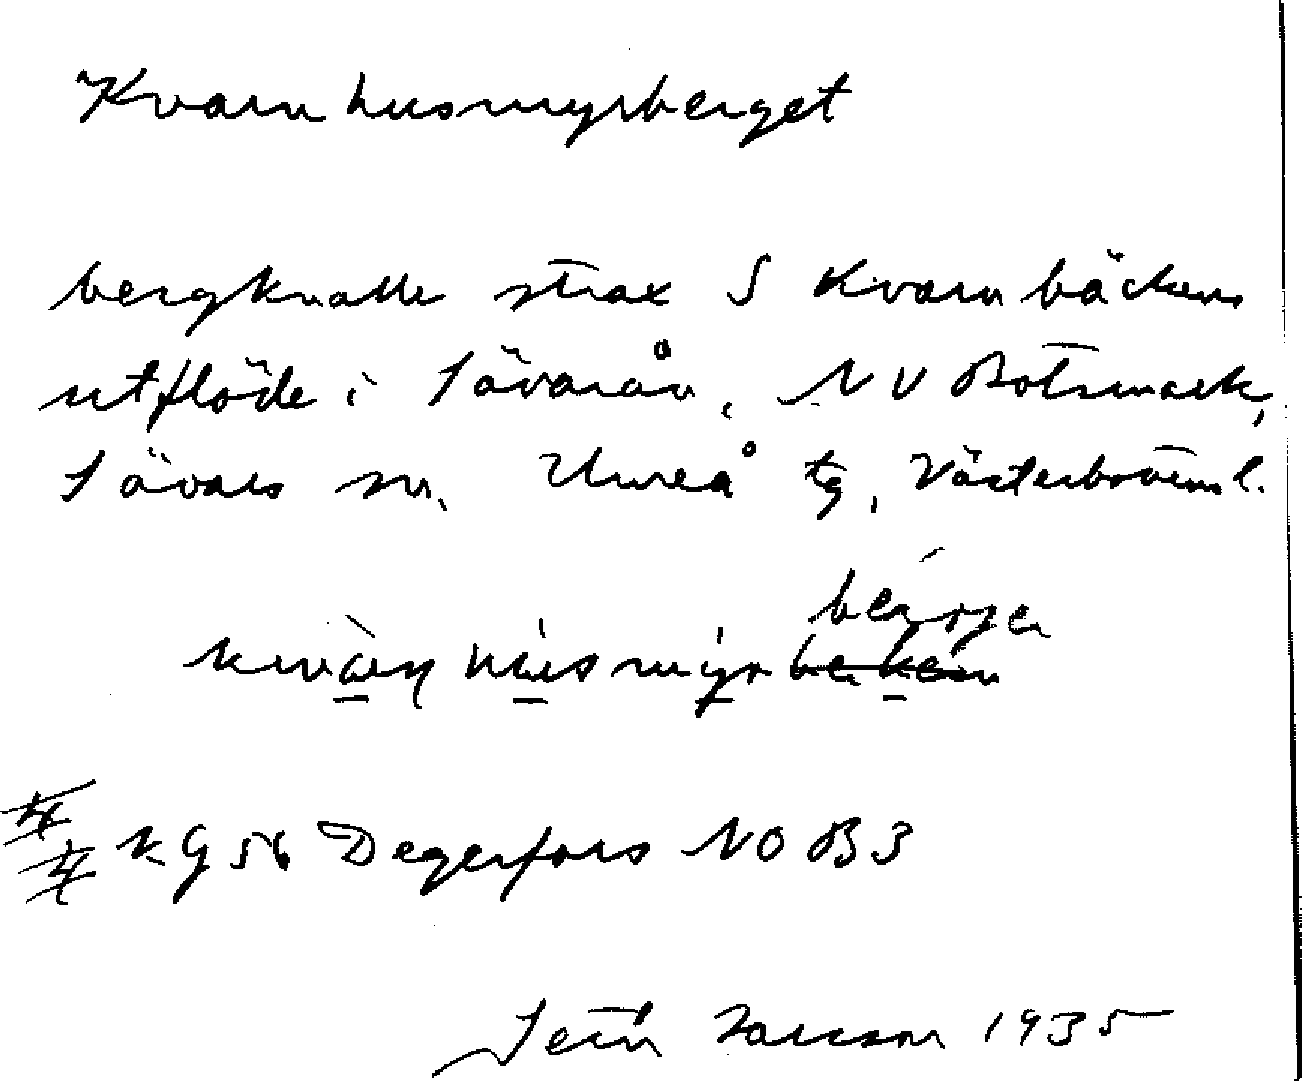 Kvarnhusmyrberget
bergknalle strax S Kvarnbäckens
utflöde i Sävarån, NV Botsmark,
Sävars sn. Umeå tg, Västerbottens l.
KG 56 Degerfors NO B3
Larsson 1935